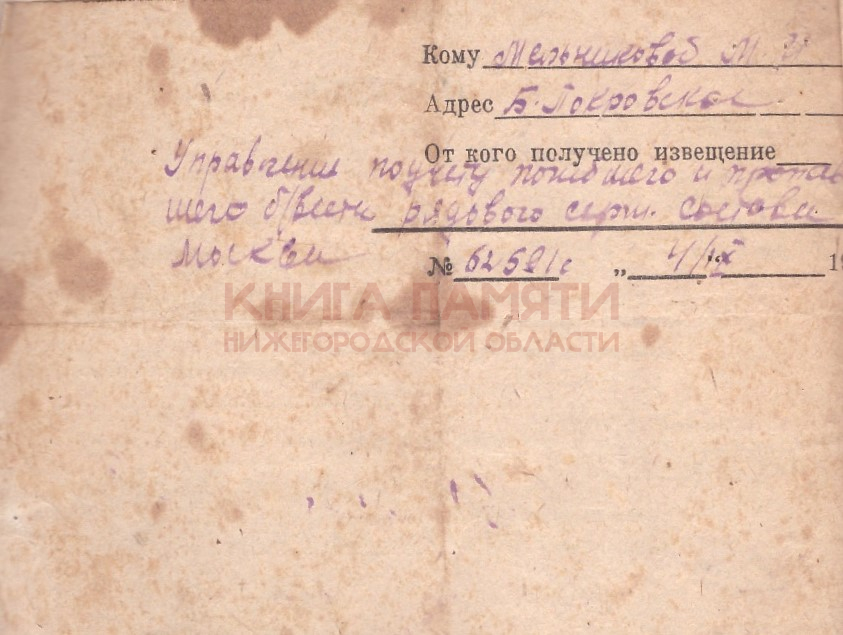 Кому Мельниковой М
Адрес Б. Покровская
От кого получено извещение
Управление по учету погибшего и пропав
шего б/вести рядового серж. состава
Москва
№ 62591с „ 4/IX “ 19
КНИГА ПАМЯТИ
НИЖЕГОРОДСКОЙ ОБЛАСТИ